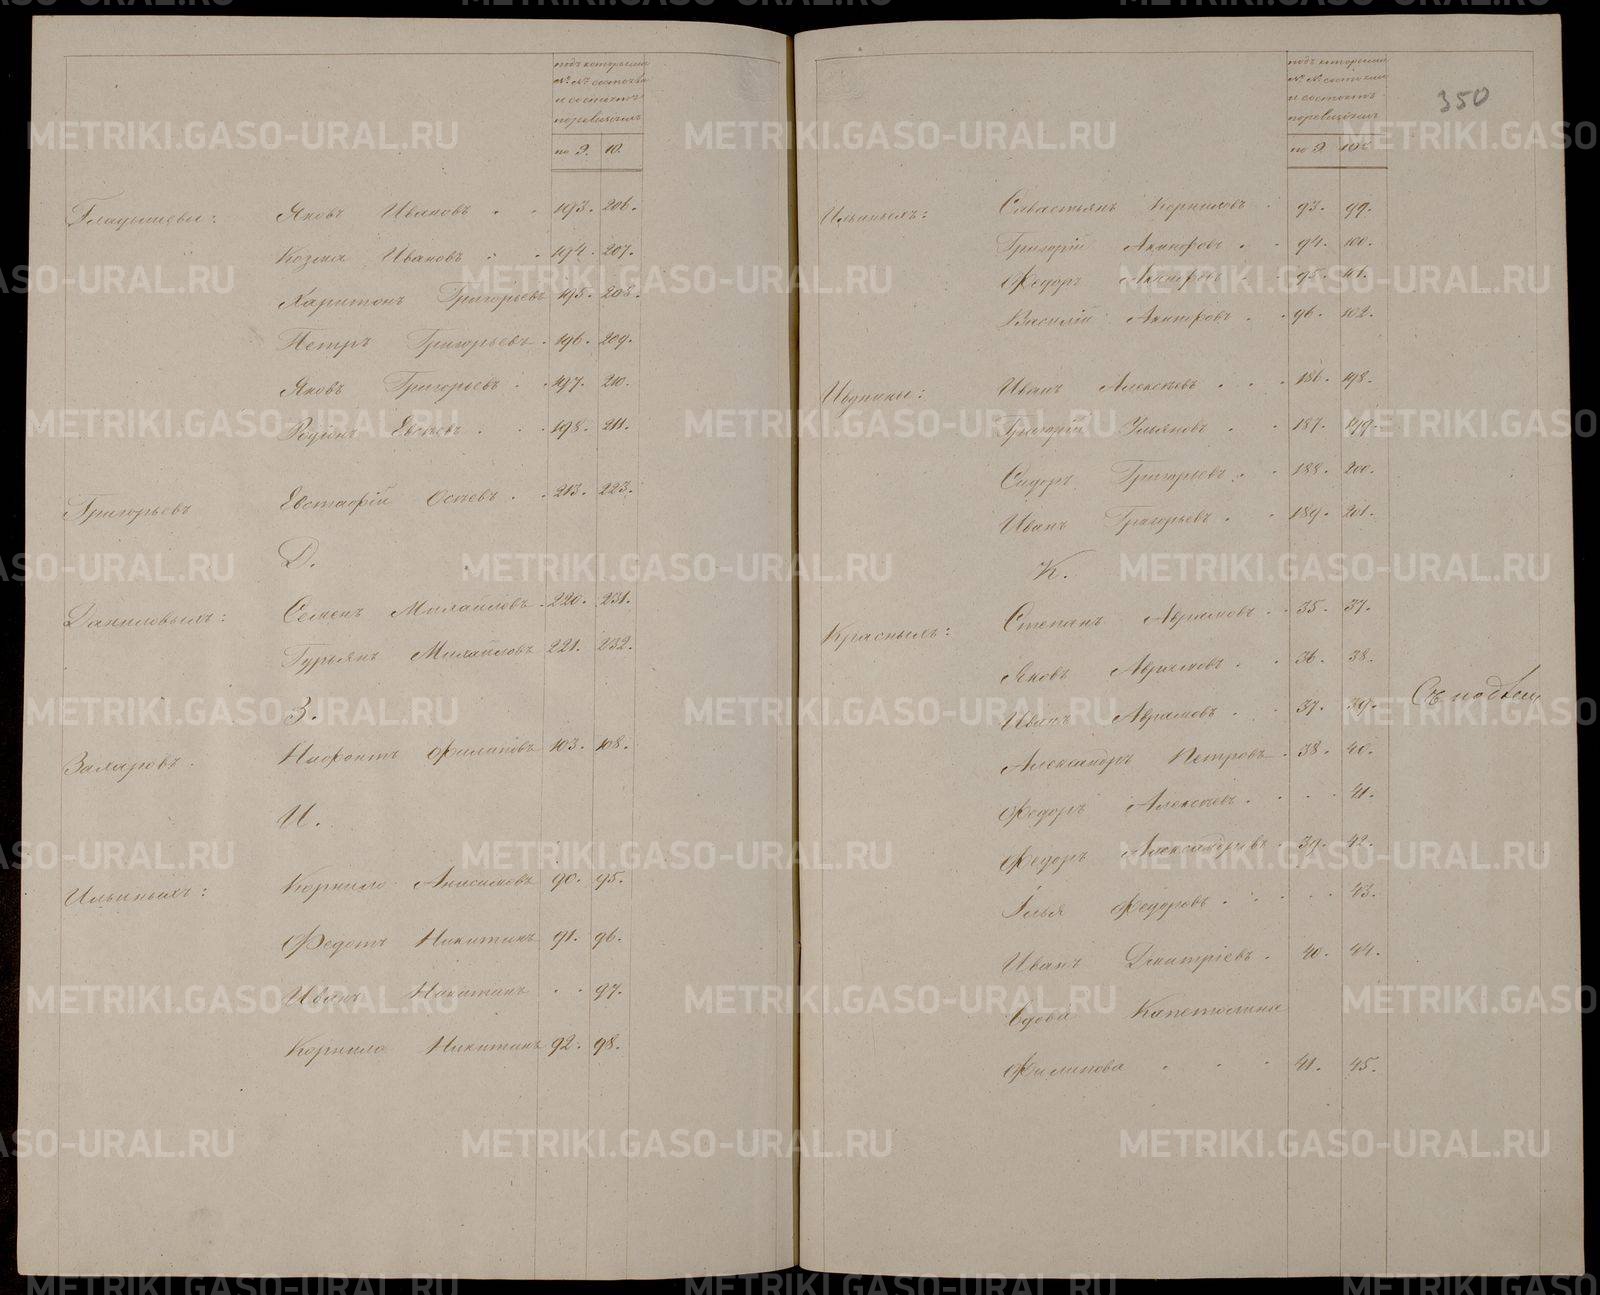 подъ которыми
№ № состояли
и состоятъ
по ревизіямъ
по 9. 10.
Гладышевы: Яковъ Ивановъ 193. 206.
Козма Ивановъ 194. 207.
Харитонъ Григорьевъ 195. 208.
Петръ Григорьевъ 196. 209.
Яковъ Григорьевъ 197. 210.
Родіонъ Евсѣевъ 198. 211.
Григорьевъ Евстафій Осѣевъ 213. 223.
Д.
Даниловымъ: Семенъ Михайловъ 220. 231.
Гурьянъ Михайловъ 221. 232.
З.
Захаровъ. Нифонтъ Филиповъ 103. 108.
И.
Ильиныхъ: Корнило Анисимовъ 90. 95.
Федотъ Никитинъ 91. 96.
Иванъ Никитинъ 97.
Корнило Никитинъ 92. 98.
350
подъ которыми
№ № состояли
и состоятъ
по ревизіямъ
по 9. 10.
Ильиныхъ: Савастьянъ Корниловъ 93. 99.
Григорій Акинфовъ 94. 100.
Федоръ Акинфовъ 95. 101.
Василій Акинфовъ 96. 102.
Иванъ Алексѣевъ 186. 198.
Григорій Ульяновъ 187. 199.
Сидоръ Григорьевъ 188. 200.
Иванъ Григорьевъ 189. 201.
К.
Красныхъ: Степанъ Аврамовъ 35. 37.
Яковъ Аврамовъ 36. 38.
Иванъ Аврамовъ 37. 39.
Александръ Петровъ 38. 40.
Федоръ Алексѣевъ 41.
Федоръ Александровъ 39. 42.
Илья Федоровъ 43.
Иванъ Дмитріевъ 40. 44.
Вдова Капетолина
Филипова 41. 45.
METRIKI.GASO-URAL.RU